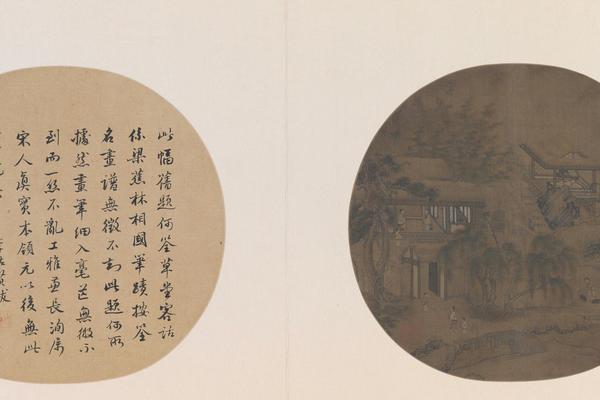 此幅舊題何筌草堂客話
係梁蕉林相國筆蹟按筌
名畫譜無徵不知此題何所
據然畫筆細入毫芒無微不
到而一絲不亂工雅兼長洵属
宋人真實本領元以後無此